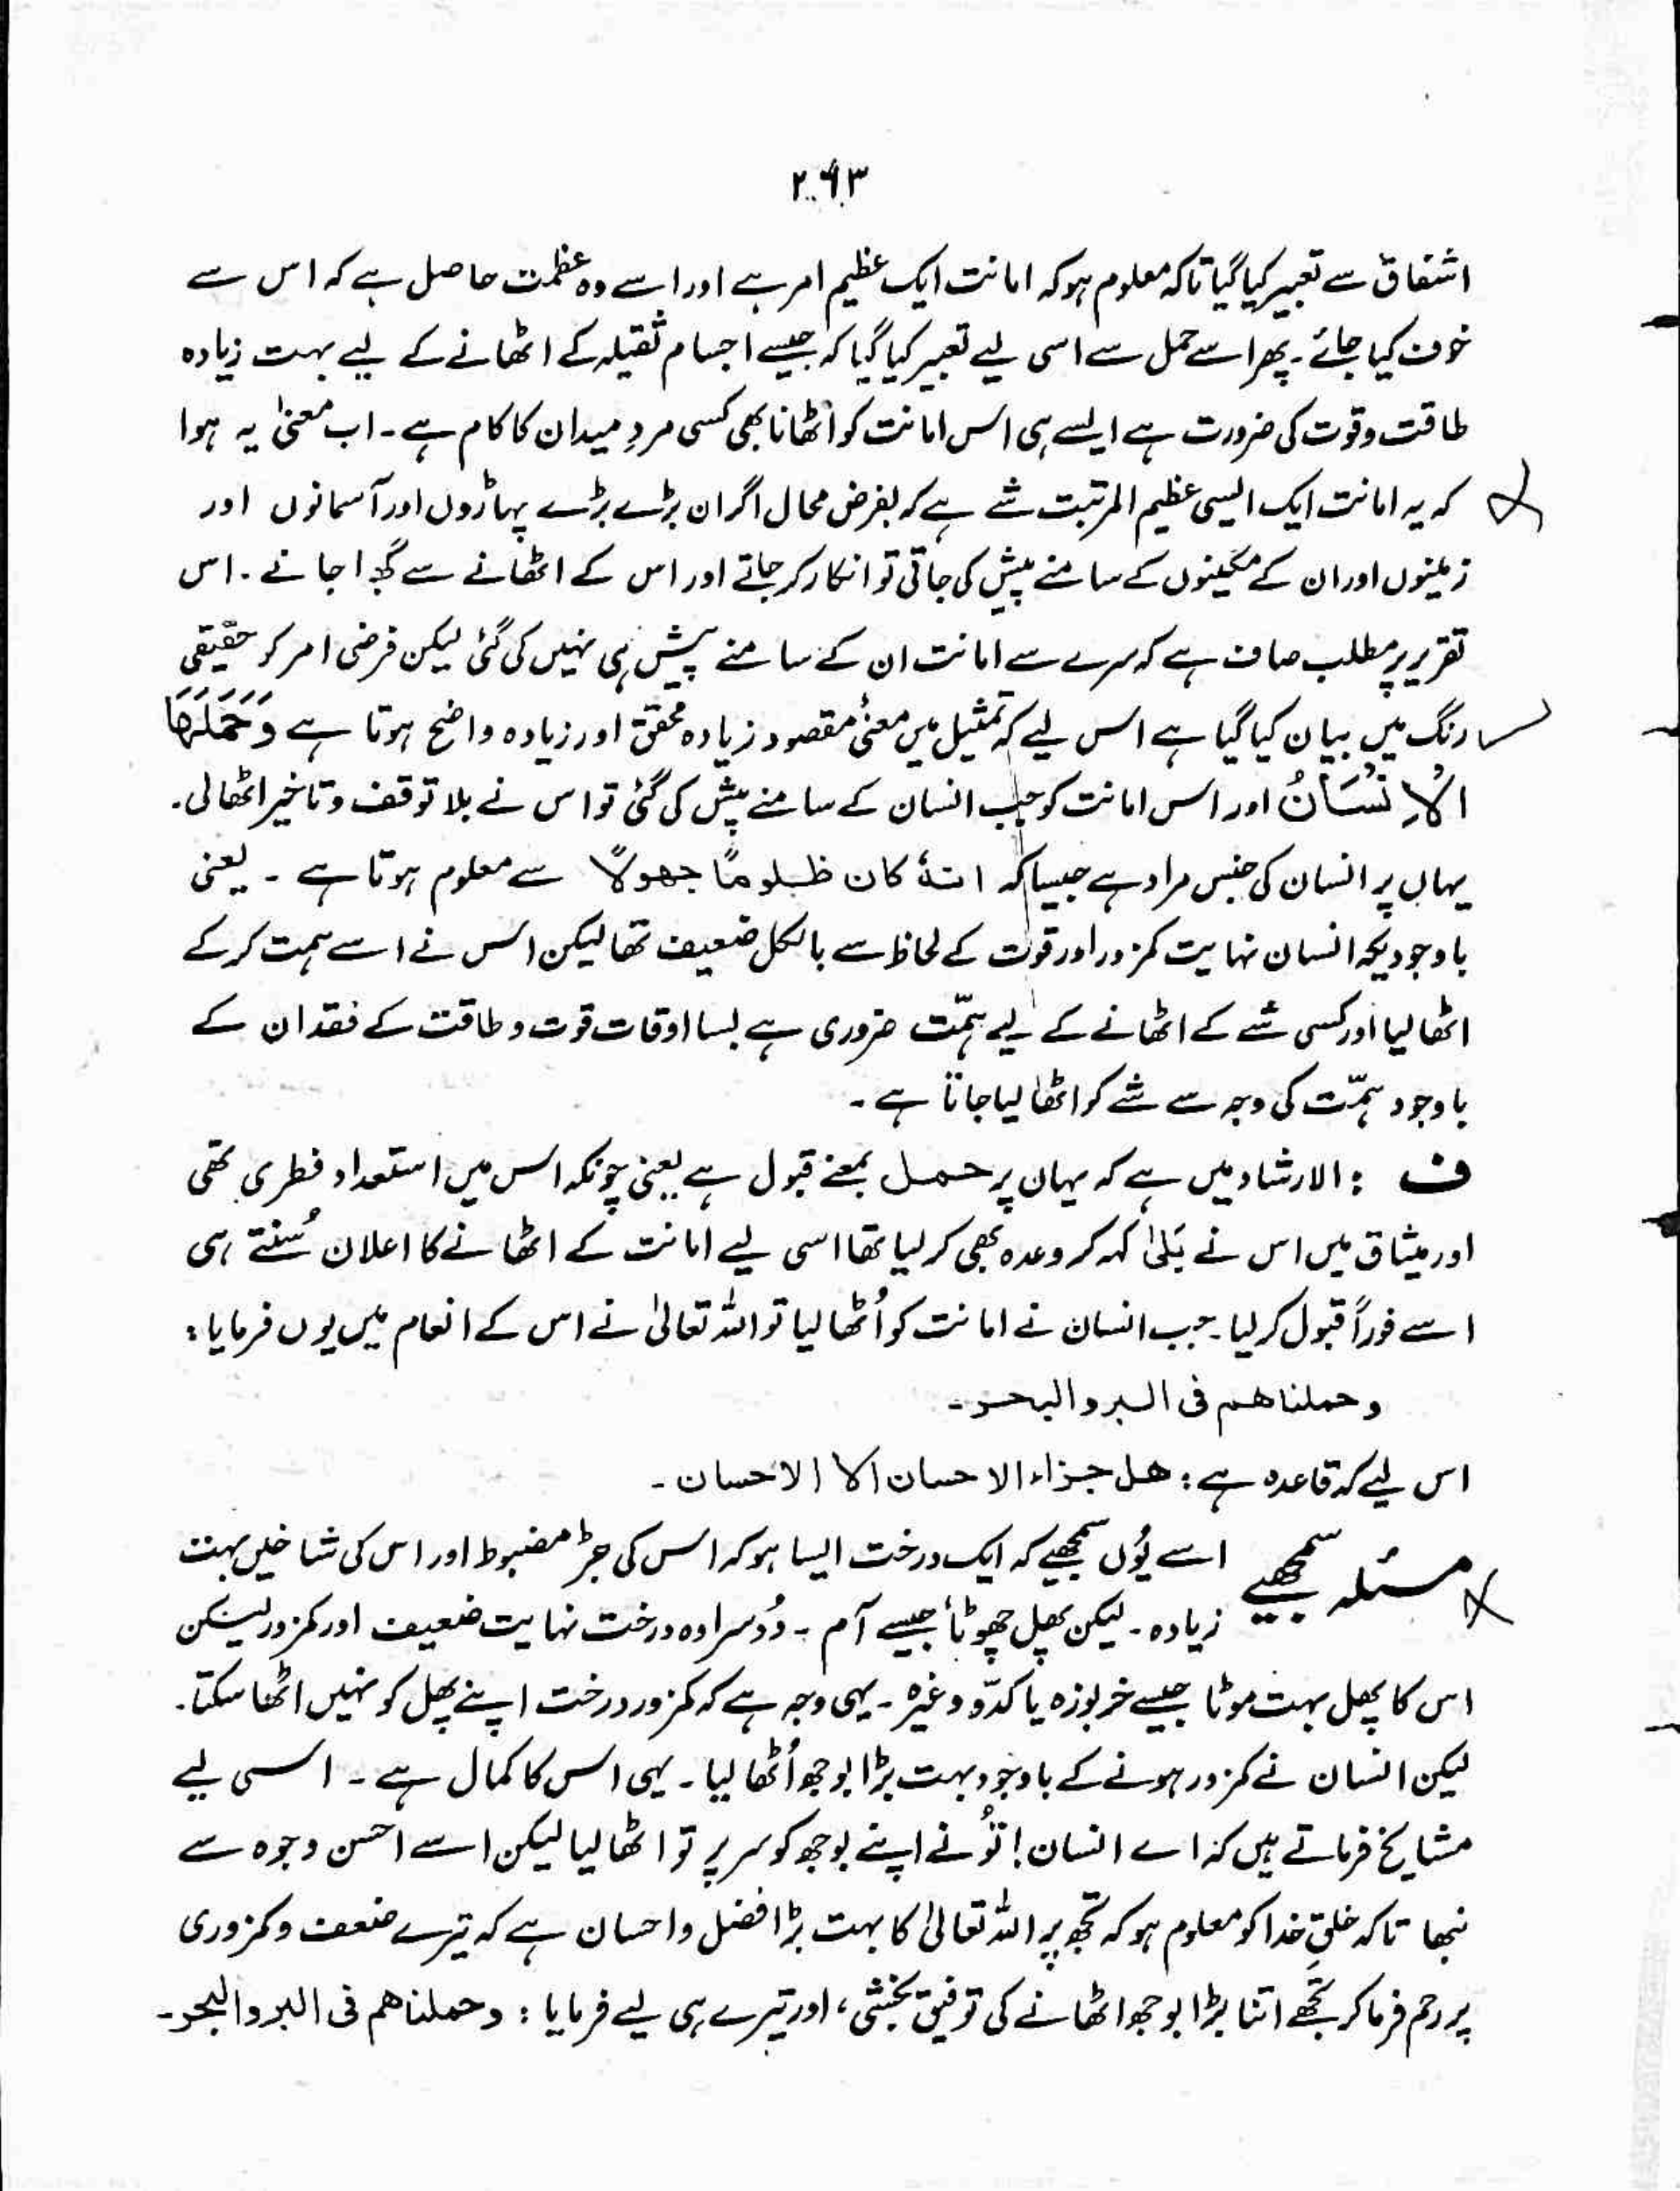 ۲۶۳
اشفاق سے تعبیر کیا گیا تاکہ معلوم ہو کہ امانت ایک عظیم امر ہے اور اسے وہ عظمت حاصل ہے کہ اس سے
خوف کیا جائے۔ پھر اسے حمل سے اسی لیے تعبیر کیا گیا کہ جیسے اجسام ثقیلہ کے اٹھانے کے لیے بہت زیادہ
طاقت و قوت کی ضرورت ہے ایسے ہی اس امانت کو اُٹھانا بھی کسی مردِ میدان کا کام ہے۔ اب معنیٰ یہ ہوا
کہ یہ امانت ایک ایسی عظیم المرتبت شے ہے کہ بفرض محال اگر ان بڑے بڑے پہاڑوں اور آسمانوں اور
زمینوں اور ان کے مکینوں کے سامنے پیش کی جاتی تو انکار کر جاتے اور اس کے اٹھانے سے گھبرا جاتے۔ اس
تقریر پر مطلب صاف ہے کہ سرے سے امانت ان کے سامنے پیش ہی نہیں کی گئی لیکن فرضی امر کو حقیقی
رنگ میں بیان کیا گیا ہے اس لیے کہ تمثیل میں معنیٔ مقصود زیادہ محقق اور زیادہ واضح ہوتا ہے وَحَمَلَهَا
الْاِنْسَانُ اور اس امانت کو جب انسان کے سامنے پیش کی گئی تو اس نے بلا توقف و تاخیر اٹھالی۔
یہاں پر انسان کی جنس مراد ہے جیسا کہ انهٗ کان ظلوماً جهولاً سے معلوم ہوتا ہے ۔ یعنی
باوجودیکہ انسان نہایت کمزور اور قوت کے لحاظ سے بالکل ضعیف تھا لیکن اس نے اسے ہمت کرکے
اٹھا لیا اور کسی شے کے اٹھانے کے لیے ہمّت ضروری ہے بسا اوقات قوت و طاقت کے فقدان کے
باوجود ہمّت کی وجہ سے شے کو اٹھا لیا جاتا ہے ۔
ف : الارشاد میں ہے کہ یہاں پر حمل بمعنے قبول ہے یعنی چونکہ اس میں استعداد فطری تھی
اور میثاق میں اس نے بَلیٰ کہہ کر وعدہ بھی کر لیا تھا اسی لیے امانت کے اٹھانے کا اعلان سُنتے ہی
اسے فوراً قبول کر لیا۔ جب انسان نے امانت کو اُٹھا لیا تو اللہ تعالیٰ نے اس کے انعام میں یوں فرمایا :
وحملناهم فی البر والبحر۔
اس لیے کہ قاعدہ ہے : هل جزاء الاحسان الا الاحسان ۔
مسئلہ سمجھیے اسے یُوں سمجھیے کہ ایک درخت ایسا ہو کہ اس کی جڑ مضبوط اور اس کی شاخیں بہت
زیادہ۔ لیکن پھل چھوٹا جیسے آم ۔ دُوسرا وہ درخت نہایت ضعیف اور کمزور لیکن
اس کا پھل بہت موٹا جیسے خربوزہ یا کدّو وغیرہ ۔ یہی وجہ ہے کہ کمزور درخت اپنے پھل کو نہیں اٹھا سکتا۔
لیکن انسان نے کمزور ہونے کے باوجود بہت بڑا بوجھ اُٹھا لیا ۔ یہی اس کا کمال ہے ۔ اسی لیے
مشایخ فرماتے ہیں کہ اے انسان ! تُو نے اپنے بوجھ کو سر پر تو اٹھا لیا لیکن اسے احسن وجوہ سے
نبھا تاکہ خلقِ خدا کو معلوم ہو کہ تجھ پر اللہ تعالیٰ کا بہت بڑا فضل و احسان ہے کہ تیرے ضعف و کمزوری
پر رحم فرما کر تجھے اتنا بڑا بوجھ اٹھانے کی توفیق بخشی ، اور تیرے ہی لیے فرمایا : وحملناهم فی البر والبحر۔